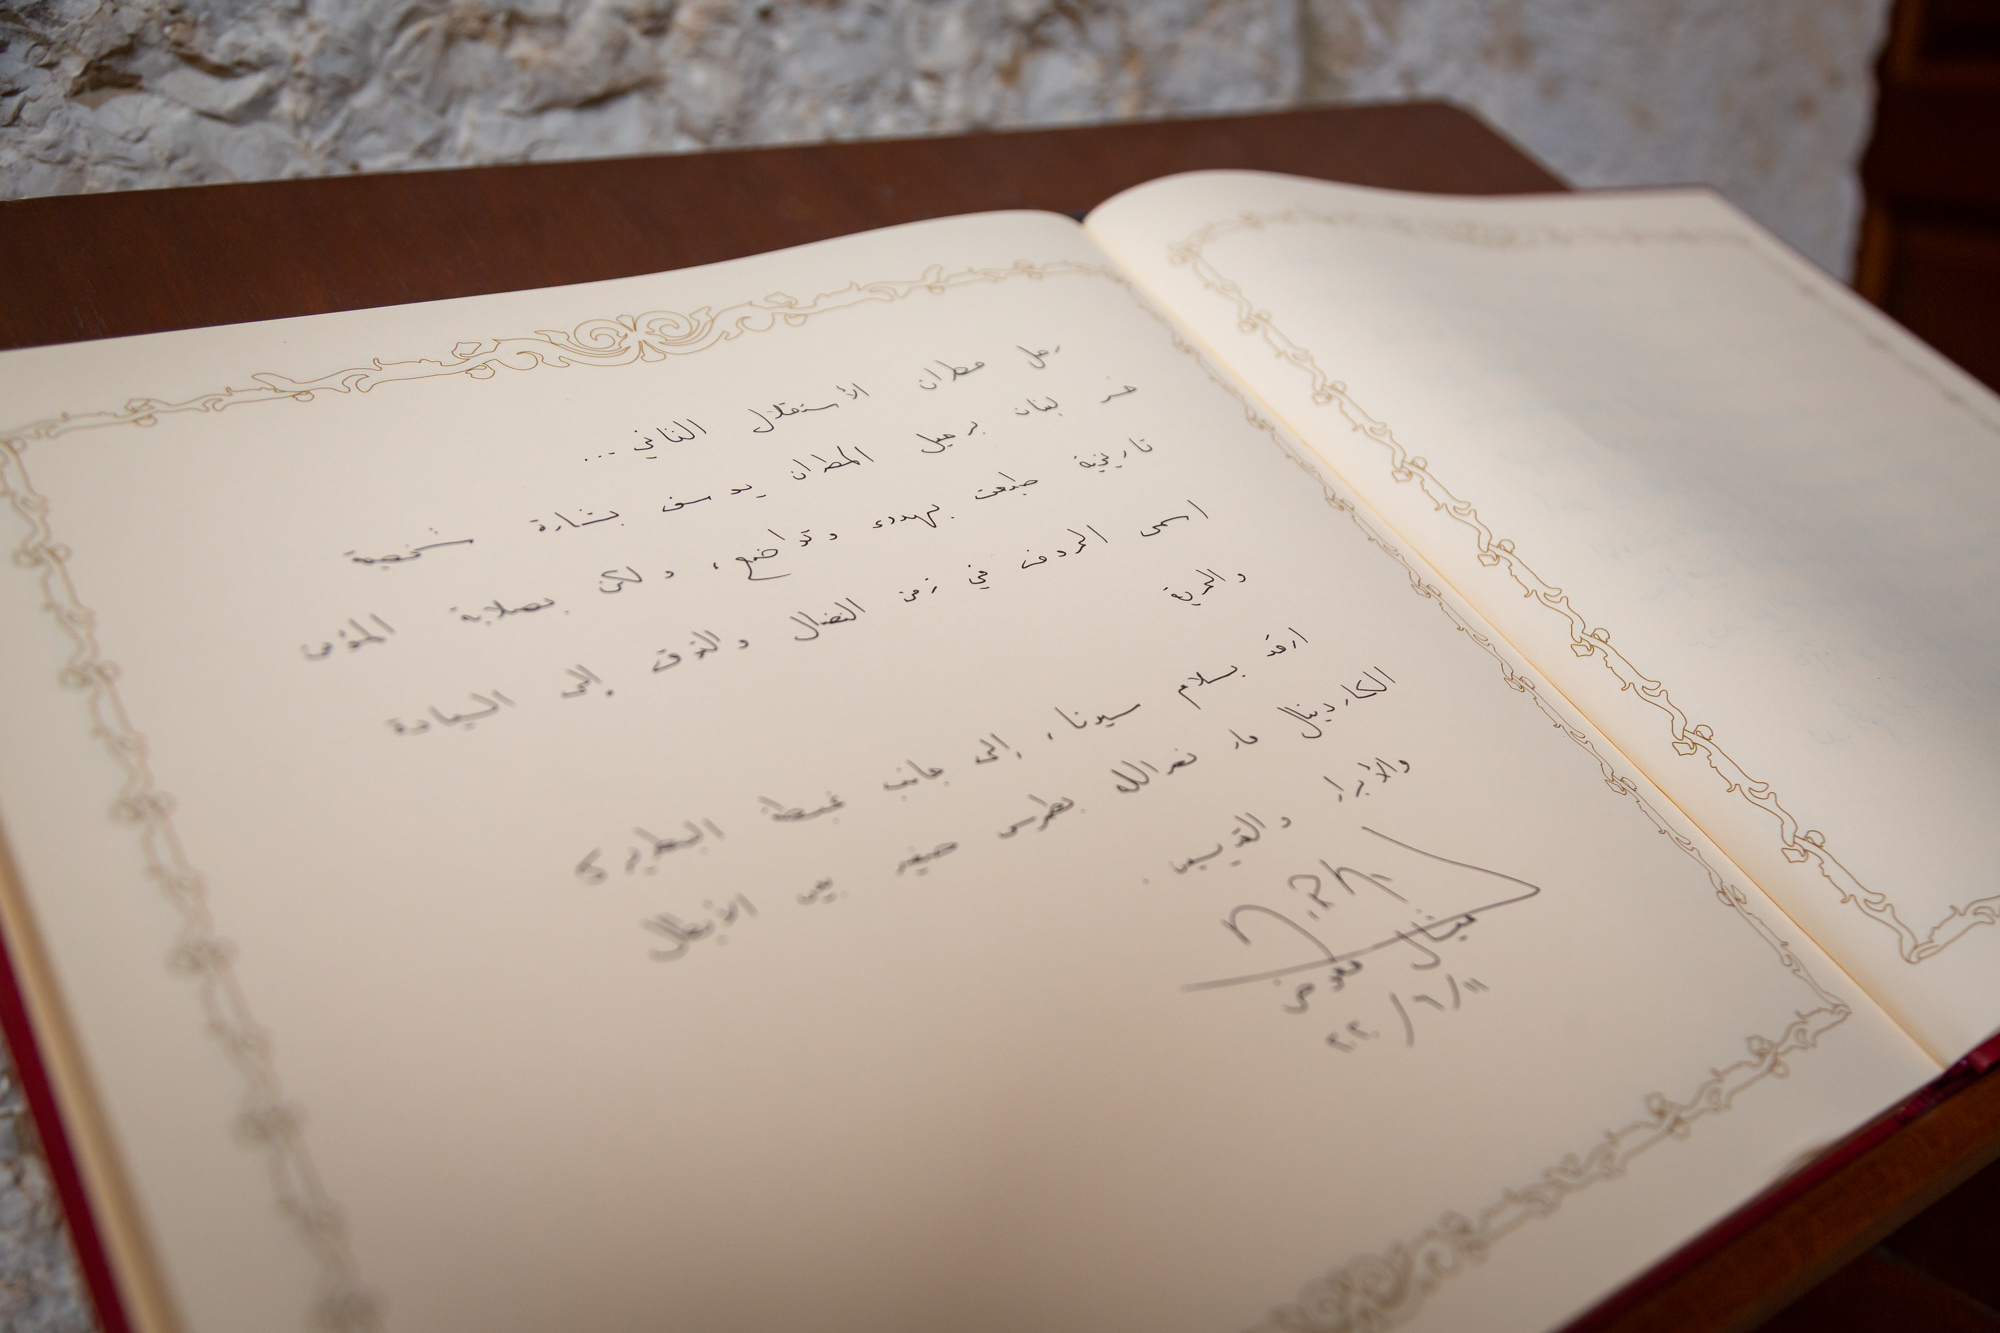 رحل مطران الاستقلال الثاني...
خسر لبنان برحيل المطران يوسف بشارة شخصية
تاريخية طبعت بهدوء وتواضع، ولكن بصلابة المؤمن
اسمى الحروف في زمن النضال والتوق إلى السيادة
والحرية
ارقد بسلام سيدنا، إلى جانب غبطة البطريرك
الكاردينال مار نصرالله بطرس صفير بين الأبطال
والأبرار والقديسين.
ميشال معوض
٢٢٠/٦/١١